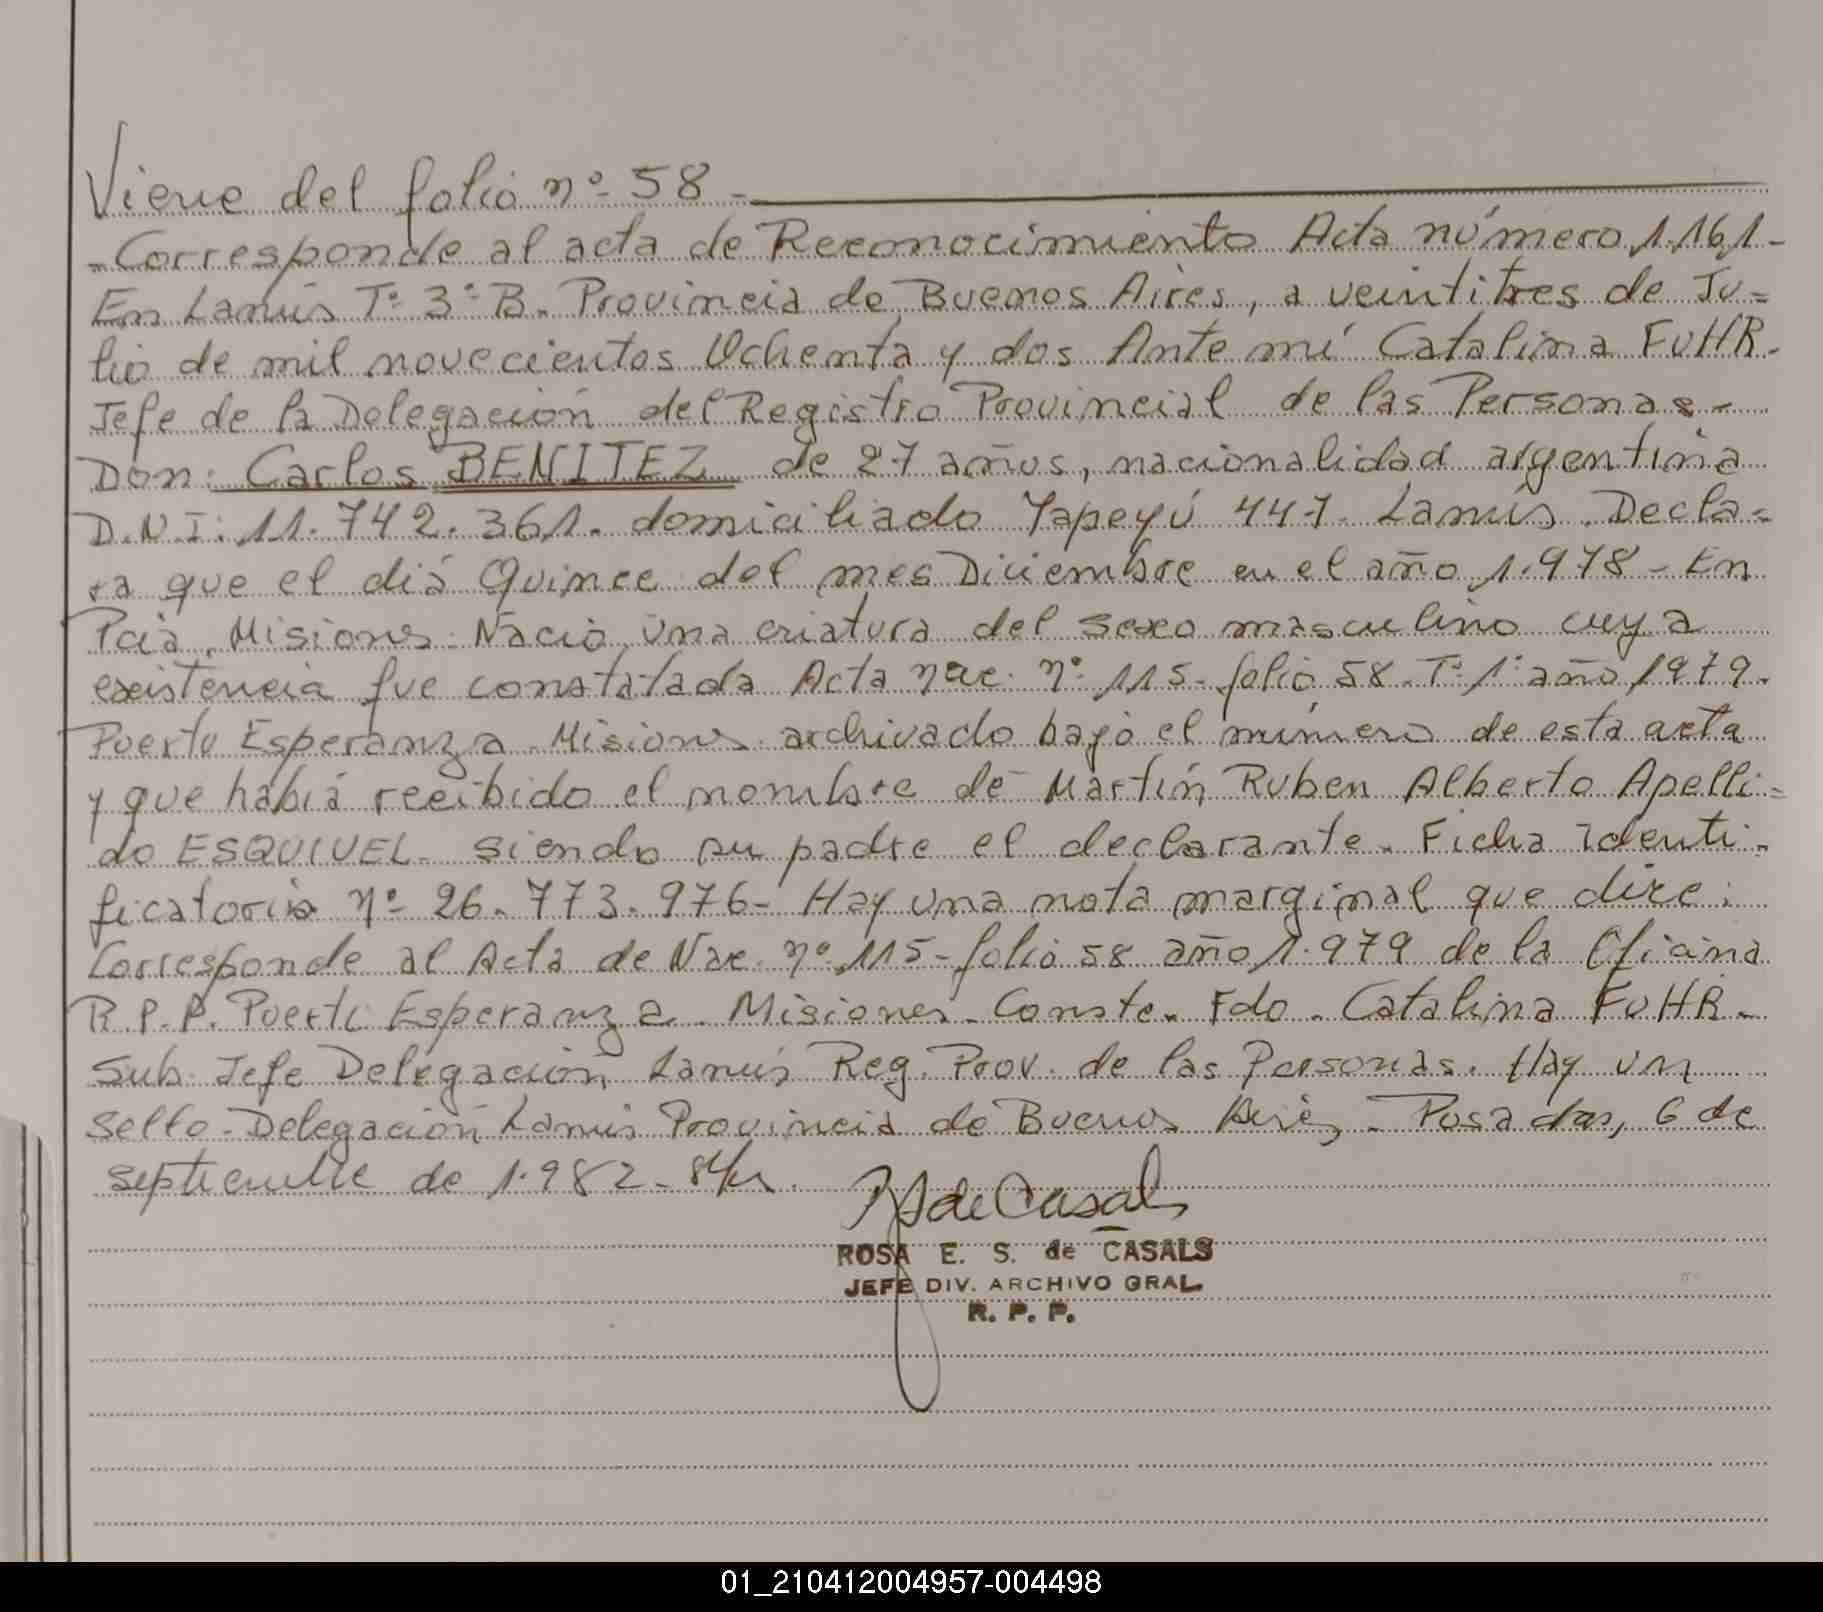 Viene del folio nº 58 -
- Corresponde al acta de Reconocimiento Acta número 1.161 -
En Lanús Tº 3º B. Provincia de Buenos Aires, a veintitres de Ju=
lio de mil novecientos Ochenta y dos Ante mí Catalina FUHR.
Jefe de la Delegación del Registro Provincial de las Personas -
Don: Carlos BENITEZ de 27 años, nacionalidad argentina
D.N.I: 11.742.361. domiciliado Yapeyú 447. Lanús. Decla=
ra que el diá Quince del mes Diciembre en el año 1.978 - En
Pcia. Misiones. Nació una criatura del sexo masculino cuya
existencia fue constatada Acta nac. nº 115 - folio 58. Tº 1º año 1979.
Puerto Esperanza Misiones archivado bajo el número de esta acta
y que habiá recibido el nombre de Martín Ruben Alberto Apelli=
do ESQUIVEL. siendo su padre el declarante. Ficha identi-
ficatoria nº 26.773.976 - Hay una nota marginal que dice:
Corresponde al Acta de Nac. nº 115 - folio 58 año 1.979 de la Oficina
R.P.P. Puerto Esperanza. Misiones. Conste. Fdo. Catalina FUHR.
Sub. Jefe Delegación Lanús Reg. Prov. de las Personas. Hay un
sello - Delegación Lanús Provincia de Buenos Aires - Posadas, 6 de
septiembre de 1.982 -
de Casals
ROSA E. S. de CASALS
JEFE DIV. ARCHIVO GRAL.
R. P. P.
01_210412004957-004498